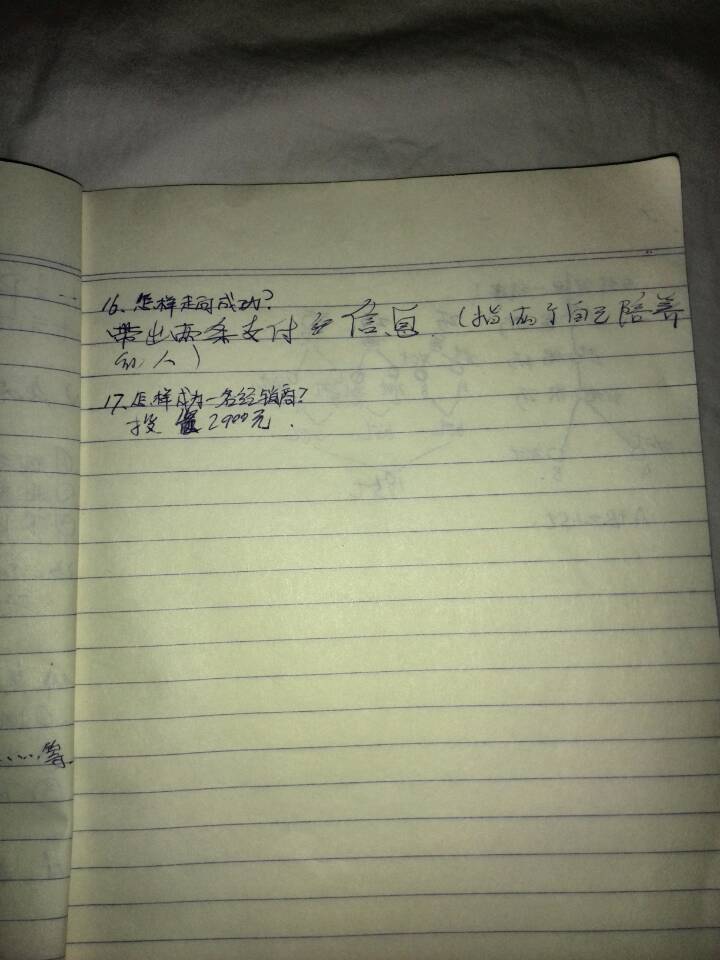 16、怎样走向成功?
带出两条支付宝信息.（指两个自己培养
的人）
17、怎样成为一名经销商?
投 2900元.
……等.